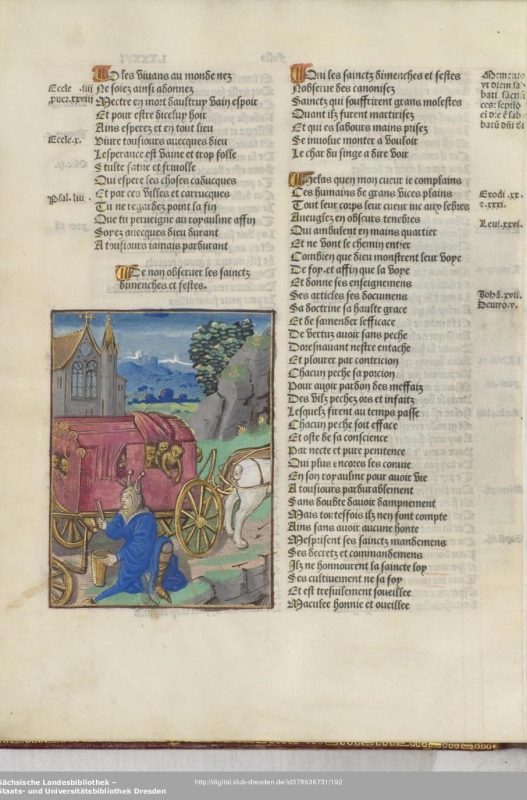 O les viuans au monde nez
Ne soiez ainsi adonnez
Mectre en mort daultruy vain espoir
Et pour estre dicelup hoir
Ains esperez et en tout lieu
Viure tousiours auecques dieu
Lesperance est vaine et trop folle
Stulte fatue et friuolle
Qui espere les choses caducques
Et par ces villes et carrucques
Tu ne regardez point la fin
Que tu perueigne au royaulme affin
Soyez auecques dieu durant
A tousiours iamais pardurant
De non obseruer les sainctz
dimenches et festes.
Eccle. iiii
prer. xxviii
Eccle. x.
Psal. liii
Qui les sainctz dimenches et festes
Nobserue des canonisez
Sainctz qui souffrirent grans molestes
Quant ilz furent martirisez
Et qui es labours mains prisez
Se inuolue monter a vouloir
Le char du singe a dire voir
Helas quen mon cueur ie complains
Les humains de grans vices plains
Tout leur corps leur cueur iuc aux lebres
Aueuglez en obscurs tenebres
Qui ambulent en mains quartier
Et ne vont le chemin entier
Combien que dieu monstrent leur voye
De foy. et affin que la voye
Et donne ses enseignemens
Ses articles ses documens
Sa doctrine sa haulte grace
Et de samender lefficace
De vertuz auoir sans peche
Doresnauant nestre entache
Et plourer par contricion
Chacun peche sa porcion
Pour auoir pardon des meffaiz
Des vilz pechez ors et infaitz
Lesquelz firent au temps passe
Chacun peche soit efface
Et oste de sa conscience
Par necte et pure penitence
Qui plus encores les conuie
En son royaulme pour auoir vie
A tousiours pardurablement
Sans doubte dauoir dampnement
Mais toutesfois ilz nen font compte
Ains sans auoir aucune honte
Mesprisent ses sainctz mandemens
Ses decretz et commandemens
Ilz ne honnourent sa saincte loy
Ses cultiuement ne sa foy
Et est tresuilement soueillee
Maculee honnie et oueillee
Memento
vt diem sa-
bati
Exodi .xx.
z. xxxi.
Leui. xxvi.
Johã. xvii.
Deutro. v.
Sächsische Landesbibliothek –
Staats- und Universitätsbibliothek Dresden
http://digital.slub-dresden.de/id378636731/192